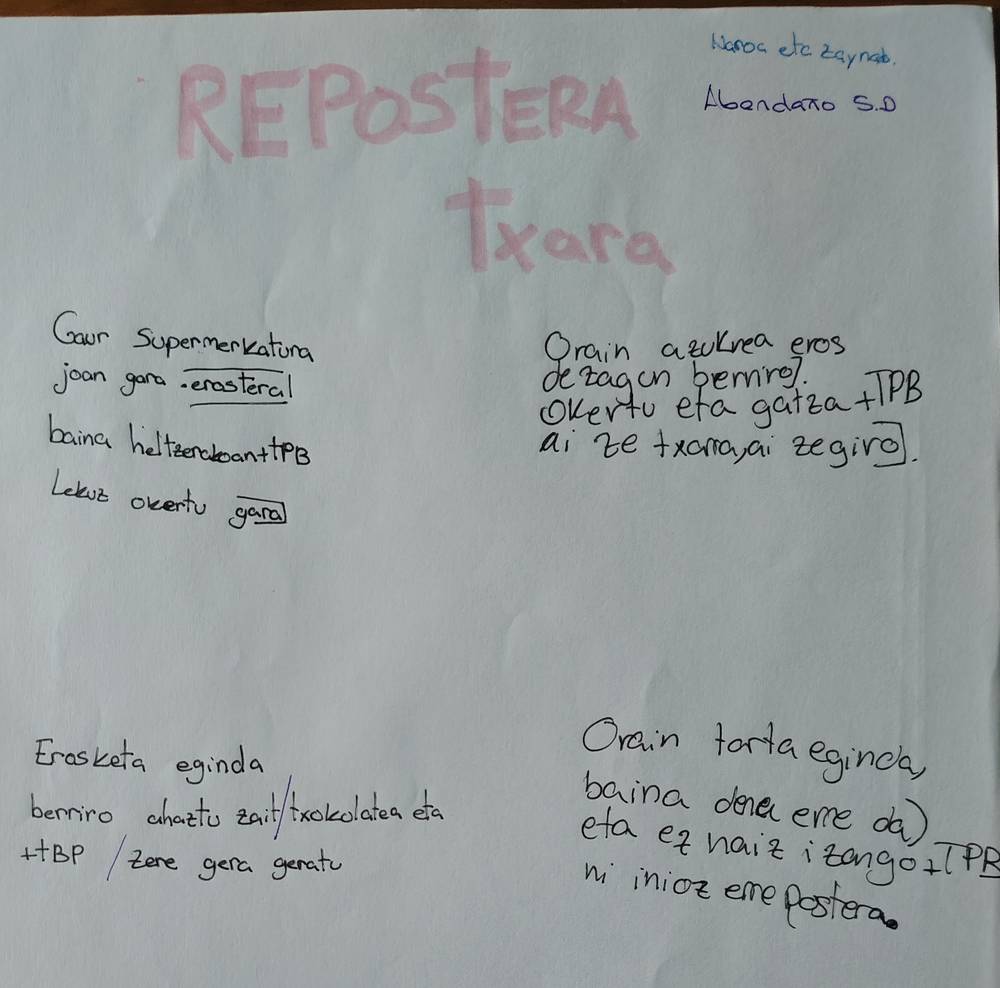 Naroa eta zaynab.
Abendaño 5.D
REPOSTERA
Txara
Gaur supermerkatura
joan gara erostera
baina heltzerakoan ++PB
Lekuz okertu gara
Orain azukrea eros
dezagun berriro.
Okertu eta gatza +TPB
ai ze txarra, ai ze giro.
Erosketa eginda
berriro ahaztu zait/txokolatea eta
++BP / zere gera geratu
Orain tarta eginda,
baina dena erre da)
eta ez naiz izango +TPB
ni inioz erre postera.